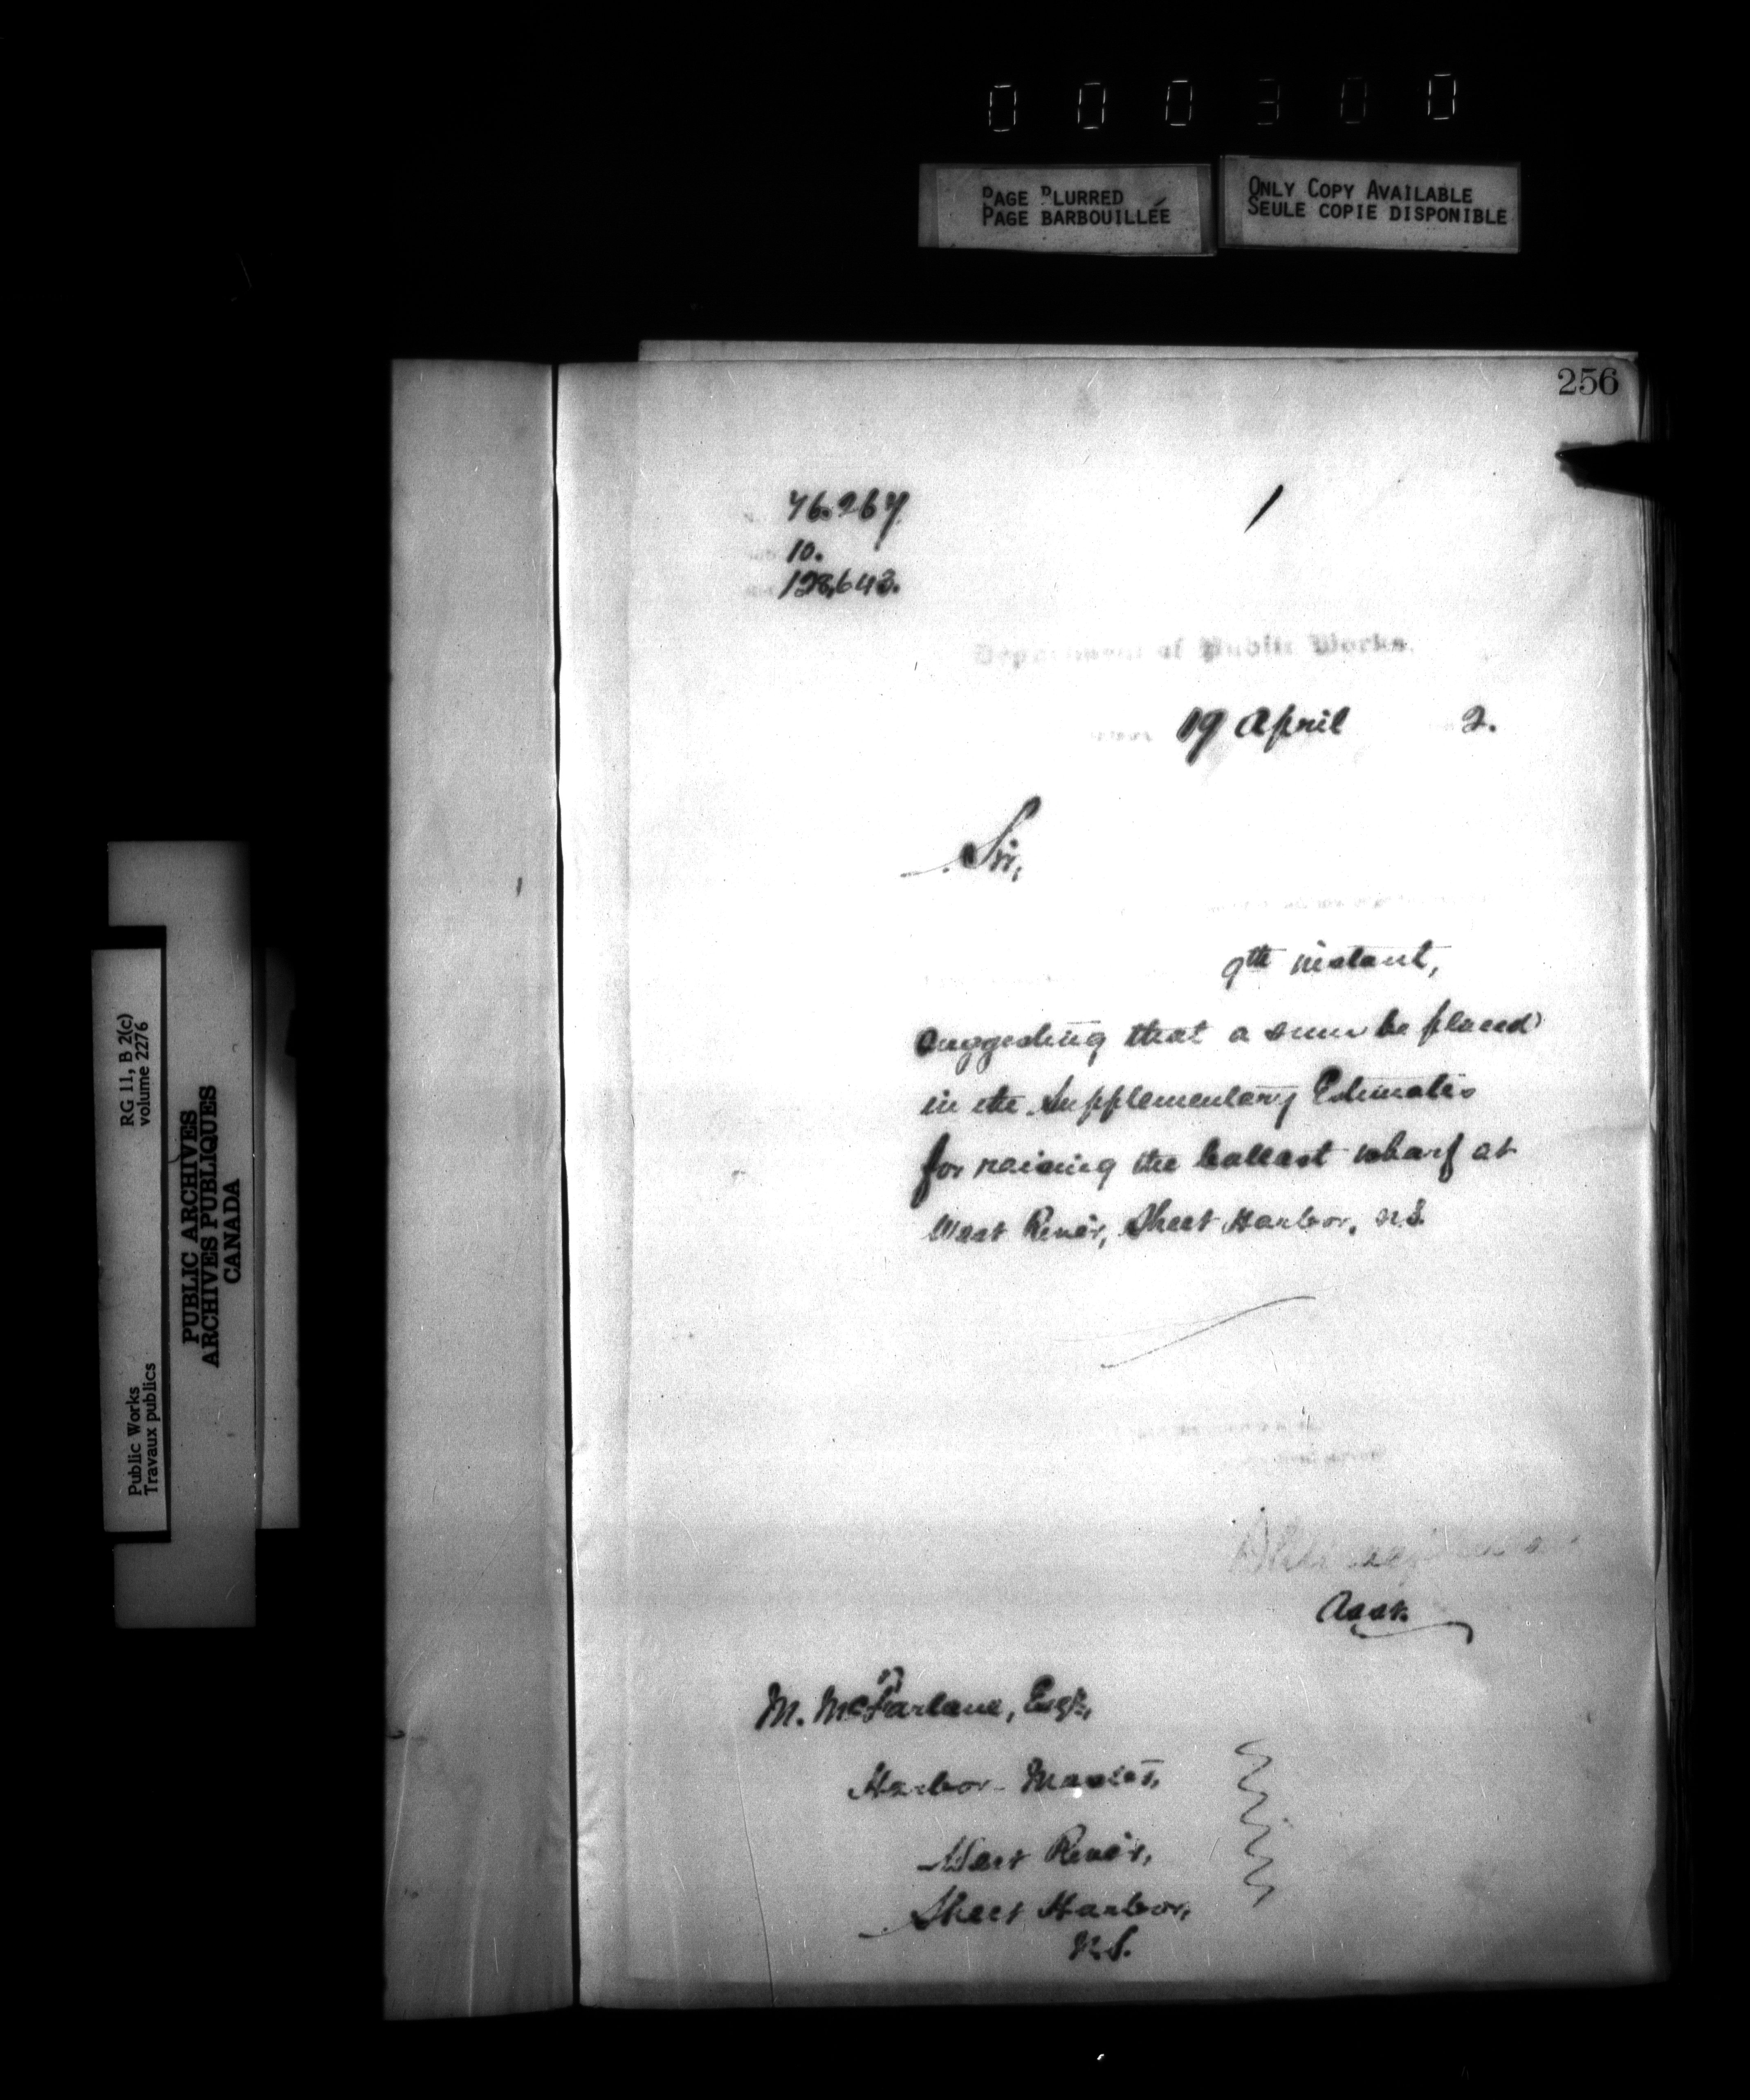 0 0 0 3 0 0
PAGE BLURRED
PAGE BARBOUILLÉE
ONLY COPY AVAILABLE
SEULE COPIE DISPONIBLE
256
76.267
10.
128,643.
1
Department of Public Works.
19 April 2.
Sir,
9th instant,
suggesting that a sum be placed
in the Supplementary Estimates
for raising the ballast wharf at
West River, Sheet Harbor, N.S.
Asst.
M. McFarlane, Esq.,
Harbor Master,
West River,
Sheet Harbor,
N.S.
RG 11, B 2(c)
volume 2276
Public Works
Travaux publics
PUBLIC ARCHIVES
ARCHIVES PUBLIQUES
CANADA